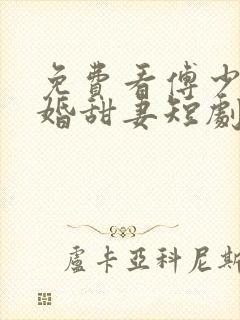 免費看傅少
婚甜妻短劇
盧卡亞科尼斯